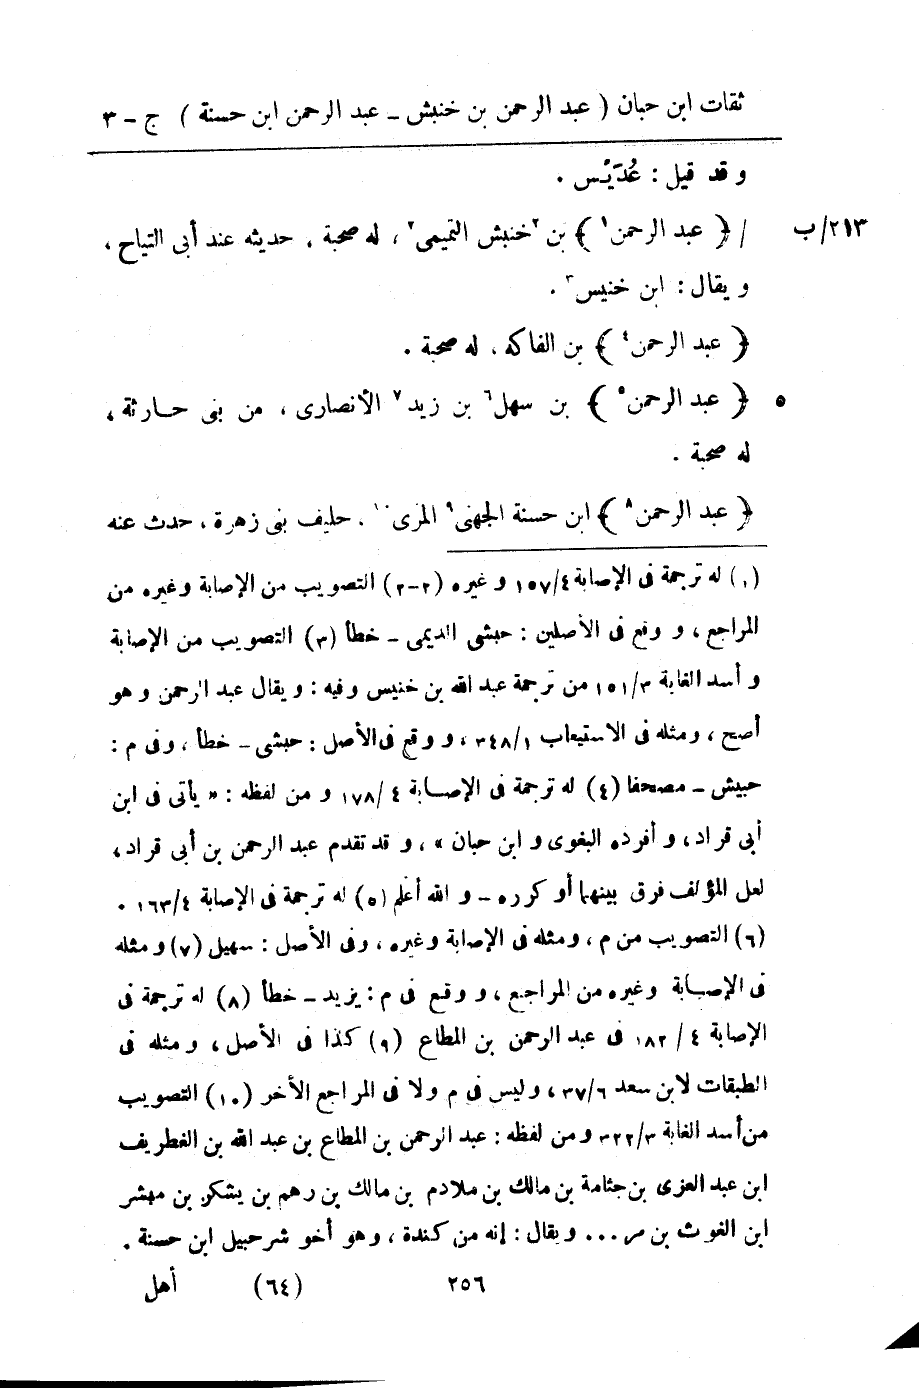 ثقات ابن حبان ( عبد الرحمن بن خنبش ـ عبد الرحمن ابن حسنة ) ج - ٣
و قد قيل : عُدَيْس .
٢١٣/ب / ﴿ عبد الرحمن١ ﴾ بن ٢خنبش التميمى٢ ، له صحبة ، حديثه عند أبى التياح ،
و يقال : ابن خنيس٣ .
﴿ عبد الرحمن٤ ﴾ بن الفاكه ، له صحبة .
٥ ﴿ عبد الرحمن٥ ﴾ بن سهل٦ بن زيد٧ الأنصارى ، من بنى حارثة ،
له صحبة .
﴿ عبد الرحمن٨ ﴾ ابن حسنة الجهنى٩ المرى١٠ ، حليف بنى زهرة ، حدث عنه
(١) له ترجمة فى الإصابة ١٥٧/٤ و غيره (٢-٢) التصويب من الإصابة وغيره من
المراجع ، و وقع فى الأصلين : حبشى الديمى ـ خطأ (٣) التصويب من الإصابة
و أسد الغابة ١٥١/٣ من ترجمة عبد الله بن خنيس وفيه : و يقال عبد الرحمن و هو
أصح ، ومثله فى الاستيعاب ٣٤٨/١ ، و وقع فى الأصل : حبشى ـ خطأ ، وفى م :
حبيش ـ مصحفا (٤) له ترجمة فى الإصابة ١٧٨/٤ و من لفظه : « يأتى فى ابن
أبى قراد ، و أفرده البغوى و ابن حبان » ، و قد تقدم عبد الرحمن بن أبى قراد ،
لعل المؤلف فرق بينهما أو كرره ـ و الله أعلم (٥) له ترجمة فى الإصابة ١٦٣/٤ .
(٦) التصويب من م ، ومثله فى الإصابة وغيره ، وفى الأصل : سهيل (٧) و مثله
فى الإصابة وغيره من المراجع ، و وقع فى م : يزيد ـ خطأ (٨) له ترجمة فى
الإصابة ٤ / ١٨٢ فى عبد الرحمن بن المطاع (٩) كذا فى الأصل ، و مثله فى
الطبقات لابن سعد ٣٧/٦ ، وليس فى م ولا فى المراجع الأخر (١٠) التصويب
من أسد الغابة ٣٢٢/٣ و من لفظه : عبد الرحمن بن المطاع بن عبد الله بن الغطريف
ابن عبد العزى بن جثامة بن مالك بن ملادم بن مالك بن رهم بن يشكر بن مهشر
ابن الغوث بن مر... و يقال : إنه من كندة ، وهو أخو شرحبيل ابن حسنة .
٢٥٦ (٦٤) أهل